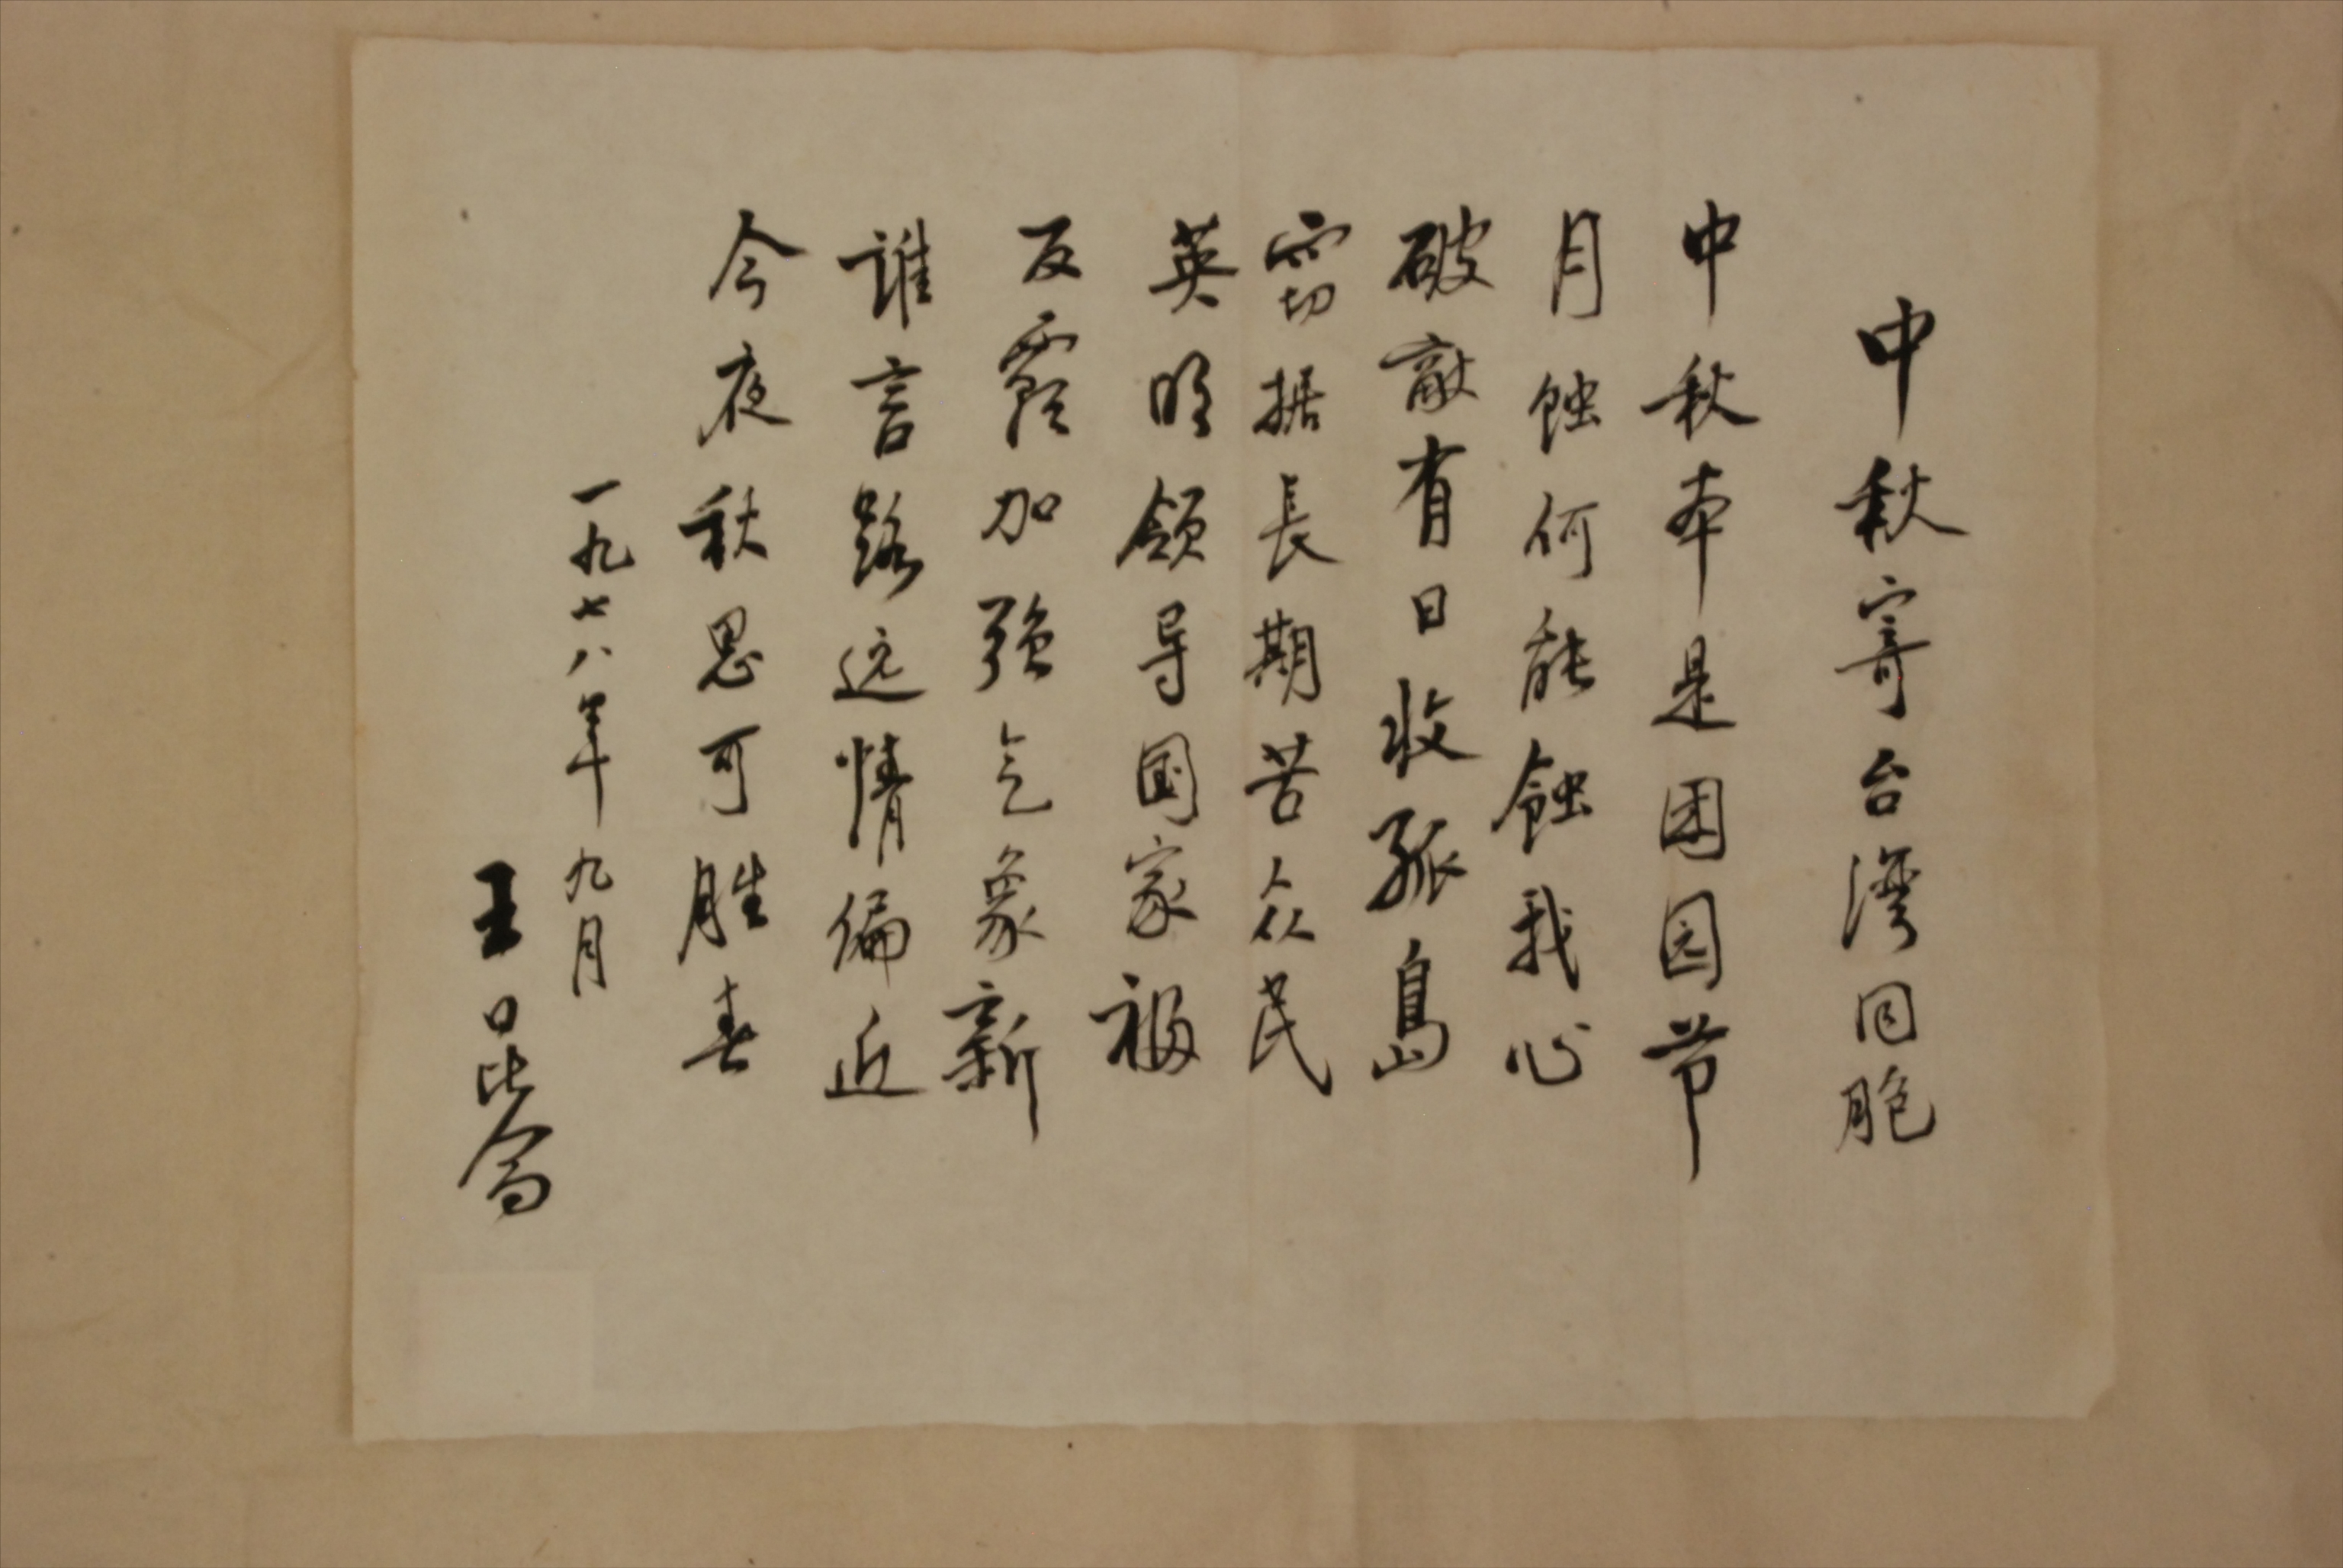 中秋寄台湾同胞
中秋本是团园节
月蚀何能蚀我心
破敌有日收孤岛
窃据長期苦众民
英明领导国家福
反霸加强气象新
谁言路远情偏近
今夜秋思可胜春
一九七八年九月
王昆仑